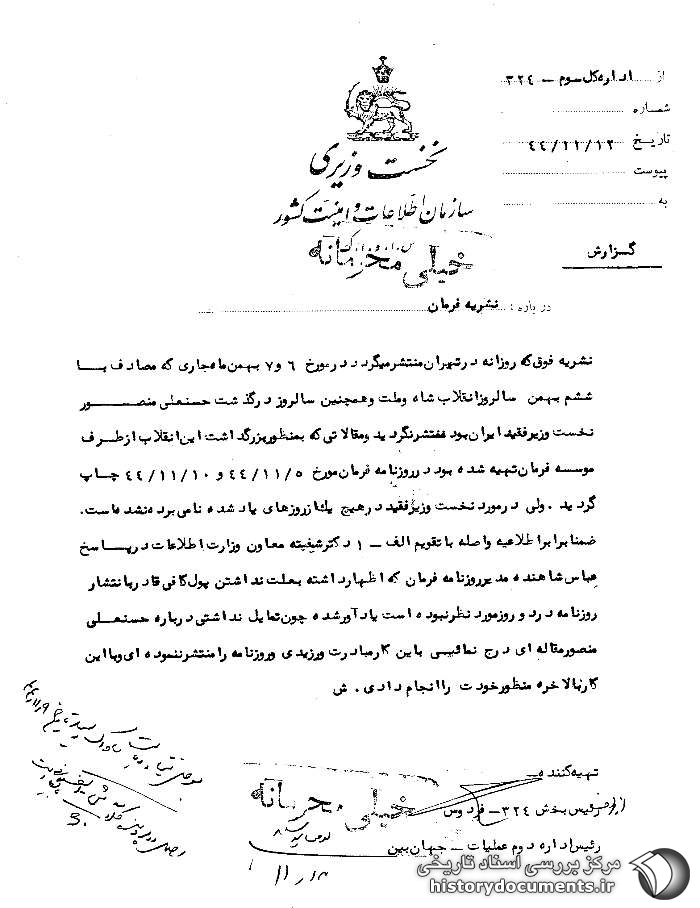 از ..... اداره کل سوم - ۳۲۴
شماره
تاریخ ۴۴/۱۱/۱۲
پیوست
به
نخست وزیری
سازمان اطلاعات و امنیت کشور
س.ا.و.ا.ک
خیلی محرمانه
گزارش
درباره : نشریه فرمان
نشریه فوق که روزانه در تهران منتشر میگردد در مورخ ۶ و ۷ بهمن ماه جاری که مصادف بــا
ششم بهمن سالروز انقلاب شاه و ملت و همچنین سالروز درگذشت حسنعلی منصــــور
نخست وزیر فقید ایران بود منتشر نگردید و مقالاتی که بمنظور بزرگداشت این انقلاب از طـرف
موسسه فرمان تهیه شده بود در روزنامه فرمان مورخ ۴۴/۱۱/۵ و ۴۴/۱۱/۱۰ چــاپ
گردید . ولی در مورد نخست وزیر فقید در هیچ یک از روزهای یاد شده نامی برده نشده است.
ضمنا برابر اطلاعیه واصله با تقویم الف - ۱ دکتر شیفیته معاون وزارت اطلاعات در پــاسخ
عباس شاهنده مدیر روزنامه فرمان که اظهار داشته بعلت نداشتن پول کافی قادر بانتشار
روزنامه در دو روز مورد نظر نبوده است یادآور شده چون تمایل نداشتی درباره حسنعـلی
منصور مقاله ای درج نمائیـی باین کار مبادرت ورزیدی و روزنامه را منتشر ننموده ای و با این
کار بالاخره منظور خودت را انجام دادی. ش
۴۴/۱۱/۹
تهیه کننده
رئیس بخش ۳۲۴ - فردوس
خیلی محرمانه
رئیس اداره دوم عملیات - جهان بین
۱۱/۱۸
مرکز بررسی اسناد تاریخی
historydocuments.ir